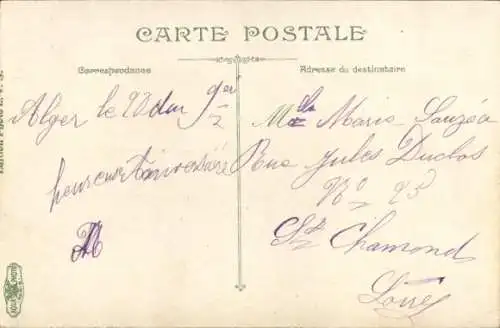 CARTE POSTALE
Correspondance
Adresse du destinataire
Alger le 20
heureux anniversaire
Mlle Marie Sauzéa
Rue Jules Duclos
No 23
St Chamond
Loire